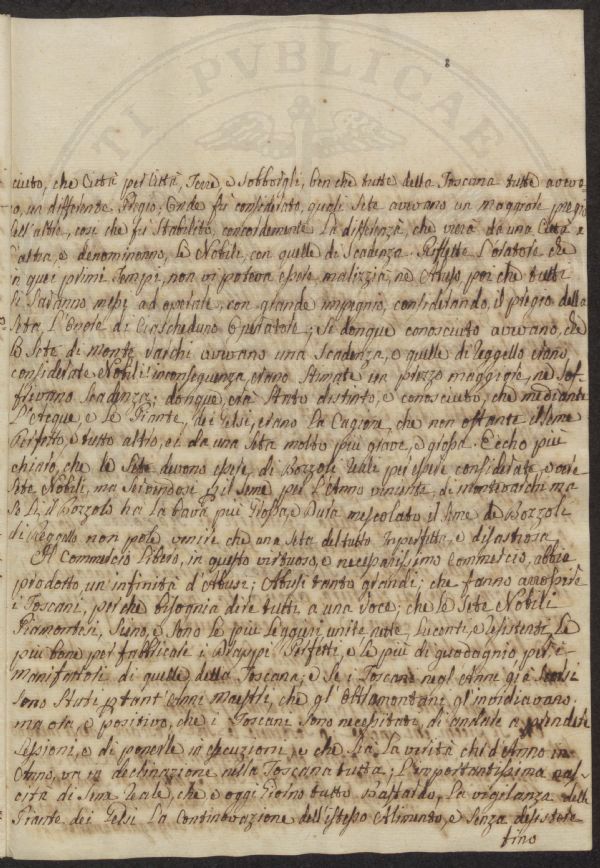 TI PVBLICAE
ciuto, che Città per Città, Terre, e Sobborgli, ben che tutte della Toscana tutte aveva-
o, un differente Pregio; Onde fu considerato, quali Sete avevano un maggiore pregio
dell'altre, cose che fu Stabilito, concordemente La differenza, che viera da una Città e
l'altra, e denominonno, Le Nobili, con quelle di Scadenza. Riflette L'oratore che
in quei primi Tempi, non vi poteva essere malizzia, ne Abuso, poi che tutti
Si Saranno messi ad operare, con grande impegnio, considerando, il pregio della
Seta L'Onore di Ciascheduno Operatore; Se donque conosciuto avevano, che
Le Sete di monte varchi avevano una Scadenza, e quelle di Reggello erano,
considerate Nobili: inconseguenza, erano Stimate un prezzo maggiore, ne Sof-
frivano Scadenza; donque, era Stato distinto, e conosciuto, che mediante
L'Acque, e le Piante, dei Gelsi, erano La Cagione, che non ostante il Seme
Perfetto, e tutto altro, ci da una Seta molto più grave, e grossa. Eccho più
chiaro, che le Sete devono essere, di Bozzole Reale per essere considerate,
Sete Nobili, ma Servendosi p il Seme per L'Anno venente, di montevarchi ma
Se Li, il Bozzolo ha La bava più Grossa, e Dura mescolato, il Seme de Bozzoli
di Reggello non pole venire che una Seta del tutto Inperfetta, e disastrosa
Il Commercio Libero, in questo virtuoso, e necessarissimo Commercio, abbia
prodotto, un'infinità d'Abusi; Abusi tanto grandi; che fanno arrossire
i Toscani, perche bisognia dire tutti, a una Voce; che le Sete Nobili
Piamontesi, Sieno, e Sono Le più Leggieri, unite, nette, Luconti, e resistenti, Le
più bone per fabbricare i Drappi Perfetti, e Le più di guadagnio, per i
manifattori di quelle, della Toscana; e Se i Toscani negl'Anni già Scorsi
Sono Stati, p tant'Anni Maestri, che gl'Oltramontani, gl'invidiavano;
ma ora, e positivo, che i Toscani Sono necessitati, di andare a prendere
Lessioni, e di ponerle in esecuzioni, e che Sia, La verità che d'Anno in
Anno, va in declinazione nella Toscana tutta; L'importantissima nas-
cita di Seme Reale, che e oggi Giorno tutto bastardo, La vigilanza delle
Piante dei Gelsi La Continovazione dell'istesso Alimento, e Senza desistere
fino